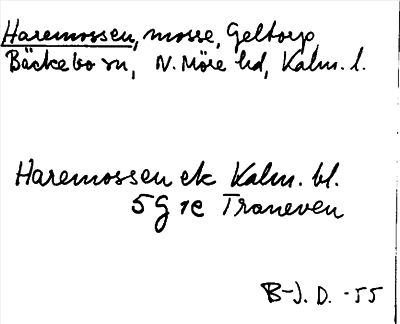 Haremossen, mosse, Geltorp
Bäckebo sn, N. Möre hd, Kalm. l.
Haremossen ek Kalm. bl.
5 G 1e Traneven
B-J. D. -55